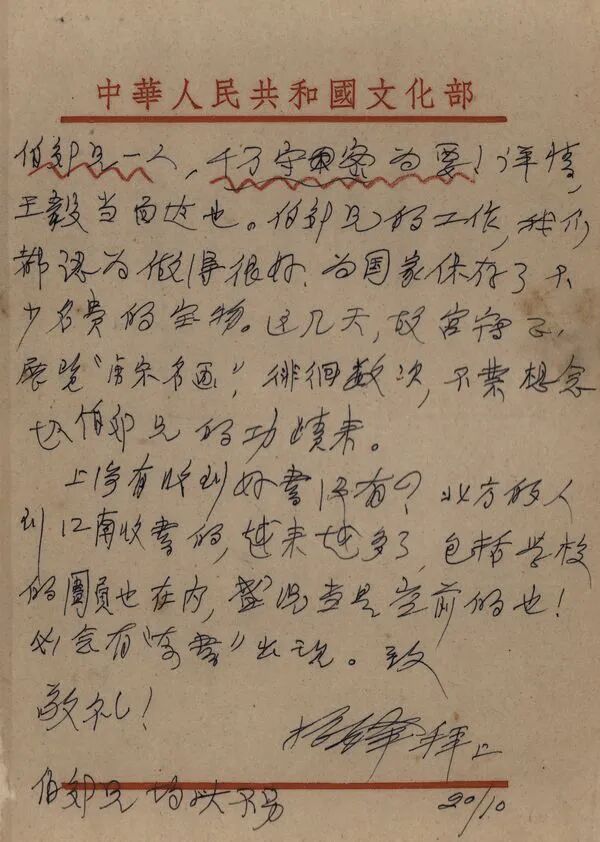 中華人民共和國文化部
伯郊兄一人，千万守密为要！详情，
王毅当面达也。伯郊兄的工作，我们
都认为做得很好，为国家保存了不
少名贵的宝物。这几天，故宫
展览“唐宋名画”，徘徊数次，不禁想念
伯郊兄的功绩来。
上海有收到好书没有？北方的人
到江南收书的，越来越多了，包括学校
的圕员也在内，盛况当是空前的也！
必会有“奇书”出现。致
敬礼！
振铎拜上
伯郊兄均此不另
20/10